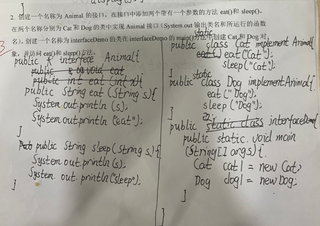 2. 创建一个名称为 Animal 的接口, 在接口中添加两个带有一个参数的方法 eat()和 sleep().
在两个名称分别为 Cat 和 Dog 的类中实现 Animal 接口 (System.out 输出类名和所运行的函数
名). 创建一个名称为 interfaceDemo 的类在 interfaceDemo 的 main()方法中创建 Cat 和 Dog 对
象, 并访问 eat()和 sleep()方法.
public interface Animal{
public String eat (String s){
System.out.println (s);
System.out.println ("eat");
}
public String sleep (String s){
System.out.println (s);
System.out.println ("sleep");
}
static
public class Cat implement Animal{
eat ("Cat");
sleep ("Cat");
}
static
public class Dog implement Animal{
eat ("Dog");
sleep ("Dog");
}
public static class interface
public static void main
(String[] args){
Cat cat1 = new Cat;
Dog dog1 = new Dog;
}